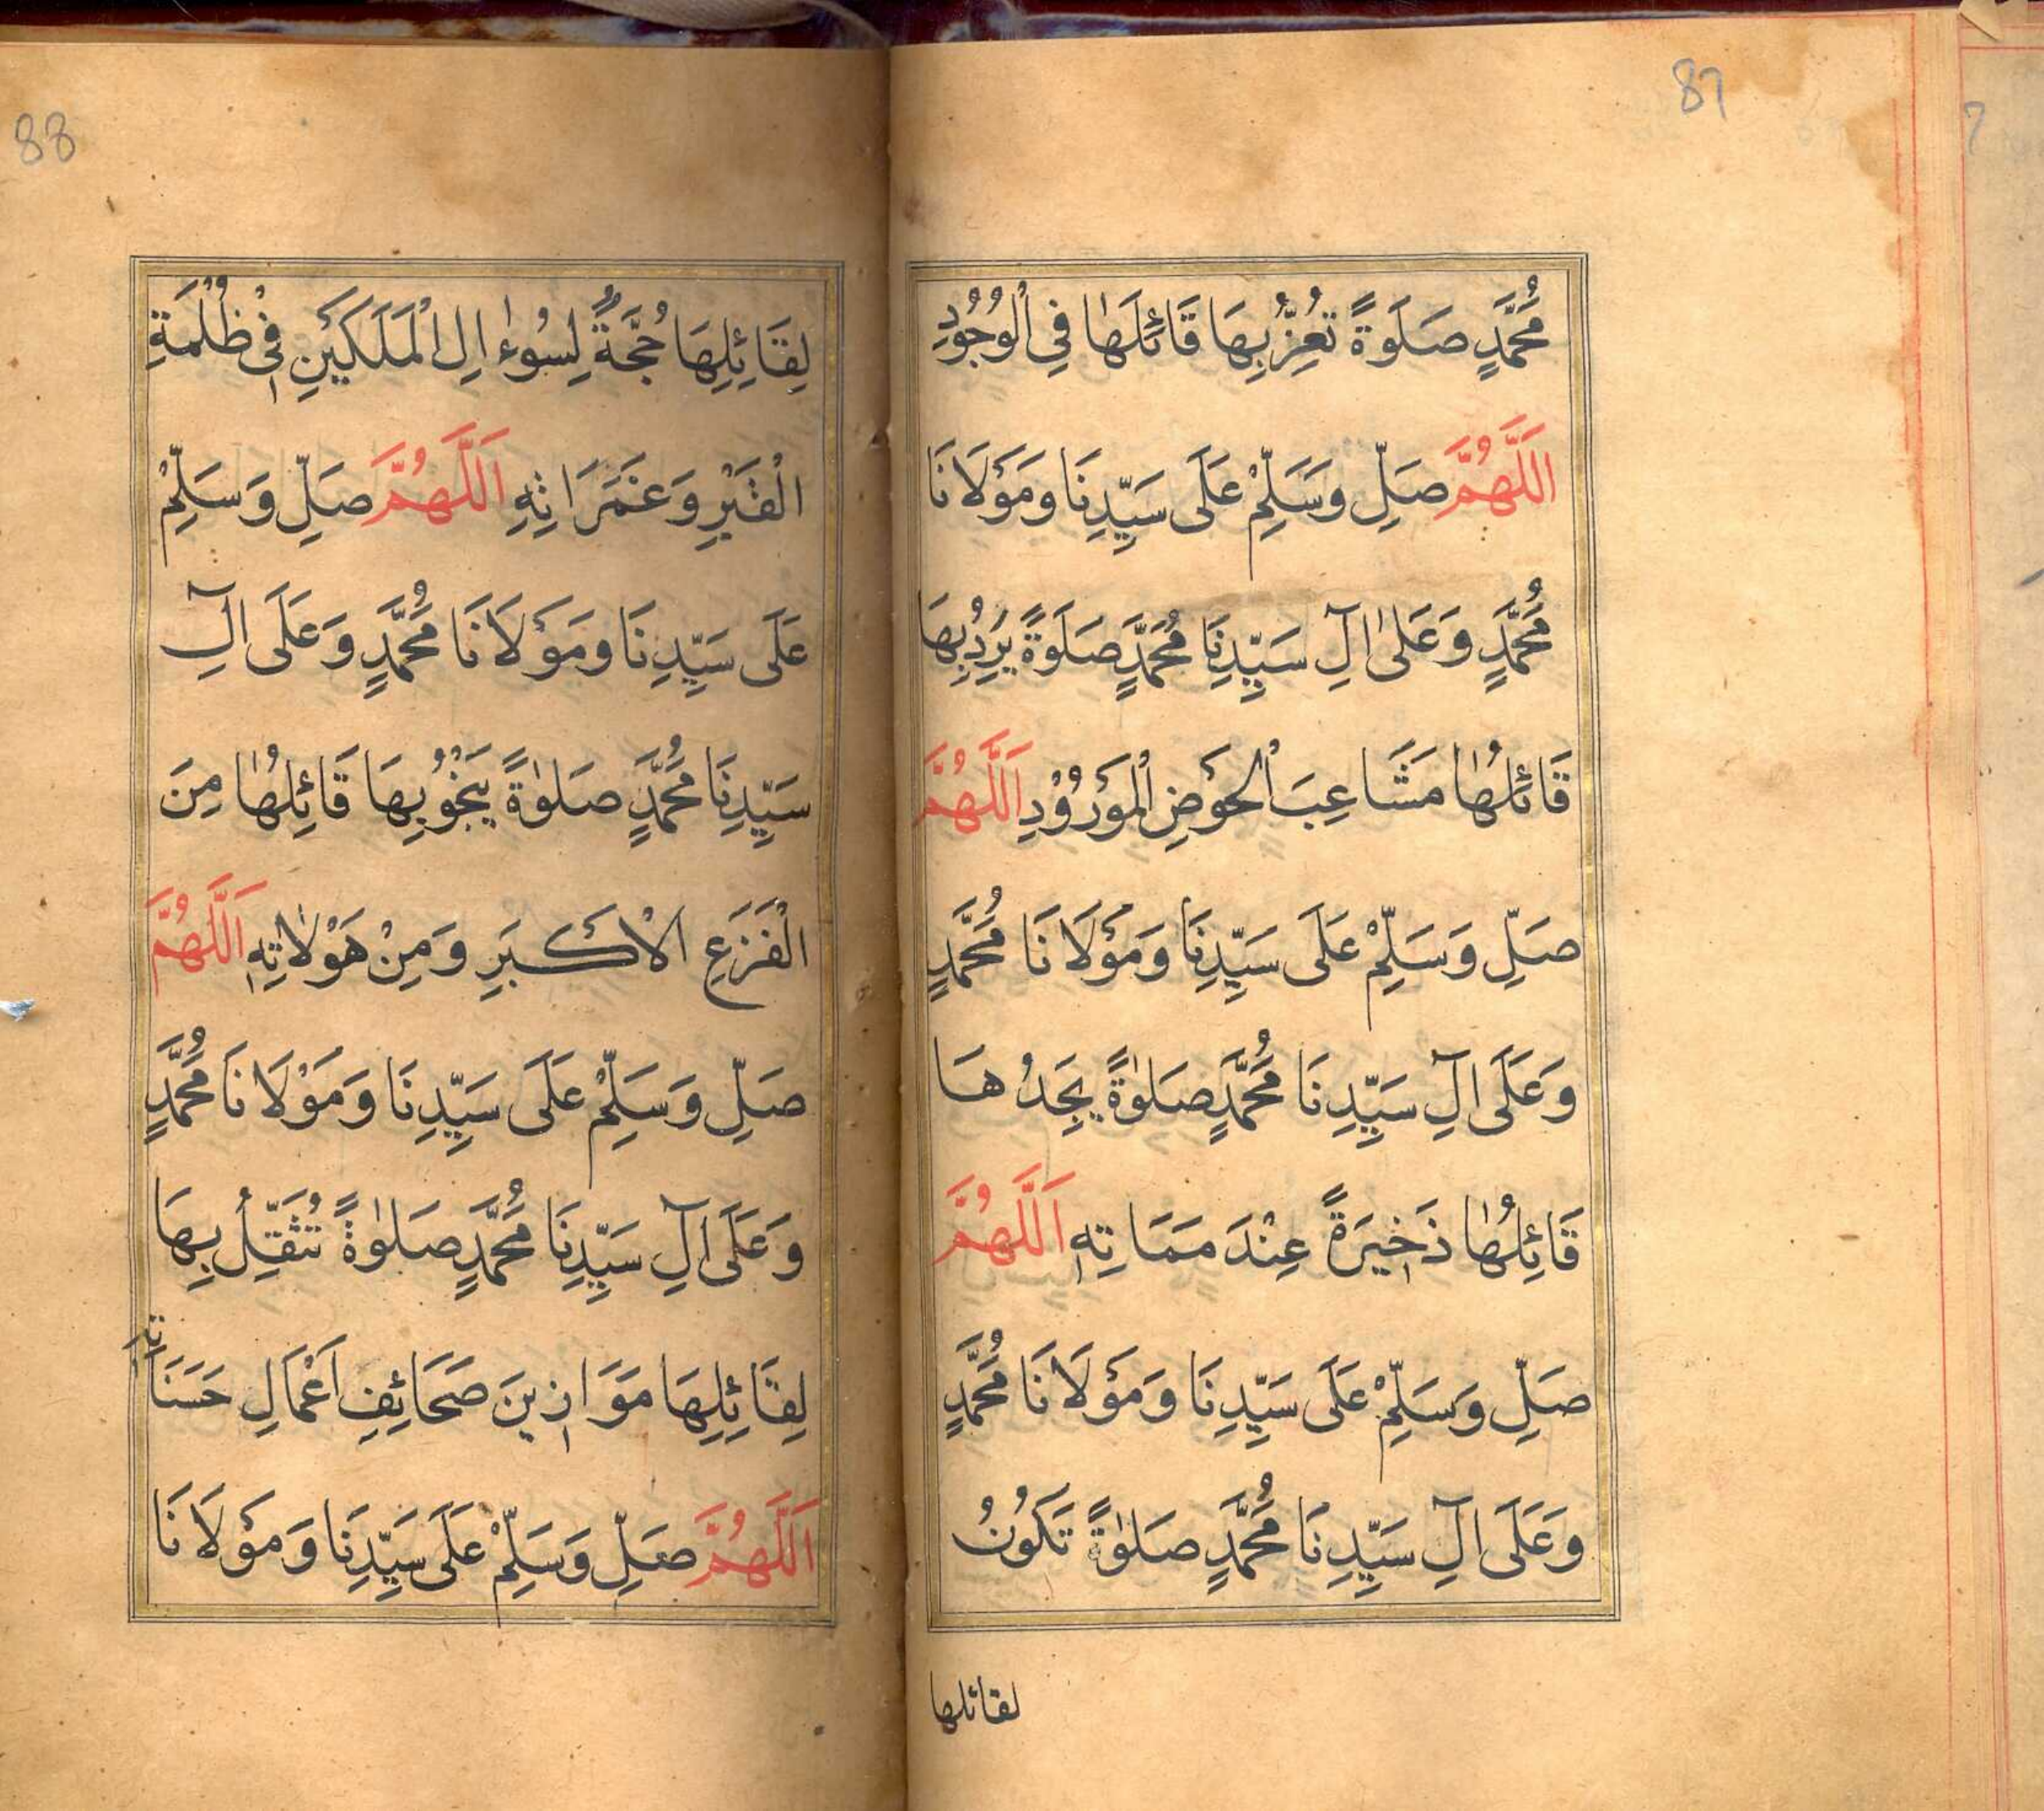 87
مُحَمَّدٍ صَلَوةً تُعِزُّ بِهَا قَائِلَهَا فِي الْوُجُوْدِ
اَللَّهُمَّ صَلِّ وَسَلِّمْ عَلَى سَيِّدِنَا وَمَوْلَانَا
مُحَمَّدٍ وَعَلٰى اٰلِ سَيِّدِنَا مُحَمَّدٍ صَلَوةً يَرِدُ بِهَا
قَائِلُهَا مَشَاعِبَ الْحَوْضِ الْمَوْرُوْدِ اَللَّهُمَّ
صَلِّ وَسَلِّمْ عَلَى سَيِّدِنَا وَمَوْلَانَا مُحَمَّدٍ
وَعَلَى اٰلِ سَيِّدِنَا مُحَمَّدٍ صَلٰوةً يَجِدُهَا
قَائِلُهَا ذَخِيرَةً عِنْدَ مَمَاتِهِ اَللَّهُمَّ
صَلِّ وَسَلِّمْ عَلَى سَيِّدِنَا وَمَوْلَانَا مُحَمَّدٍ
وَعَلَى اٰلِ سَيِّدِنَا مُحَمَّدٍ صَلٰوةً تَكُوْنُ
لقائلها
88
لِقَائِلِهَا حُجَّةً لِسُوءٰالِ الْمَلَكَيْنِ فِيْ ظُلْمَةِ
الْقَبْرِ وَغَمَرَاتِهِ اَللَّهُمَّ صَلِّ وَسَلِّمْ
عَلَى سَيِّدِنَا وَمَوْلَانَا مُحَمَّدٍ وَعَلَى اٰلِ
سَيِّدِنَا مُحَمَّدٍ صَلٰوةً يَنْجُوْ بِهَا قَائِلُهَا مِنَ
الْفَزَعِ الْاَكْبَرِ وَمِنْ هَوْلَاتِهِ اَللَّهُمَّ
صَلِّ وَسَلِّمْ عَلَى سَيِّدِنَا وَمَوْلَانَا مُحَمَّدٍ
وَعَلَى اٰلِ سَيِّدِنَا مُحَمَّدٍ صَلٰوةً تُثَقِّلُ بِهَا
لِقَائِلِهَا مَوَازِينَ صَحَائِفِ اَعْمَالِ حَسَنَاتِهِ
اَللَّهُمَّ صَلِّ وَسَلِّمْ عَلَى سَيِّدِنَا وَمَوْلَانَا